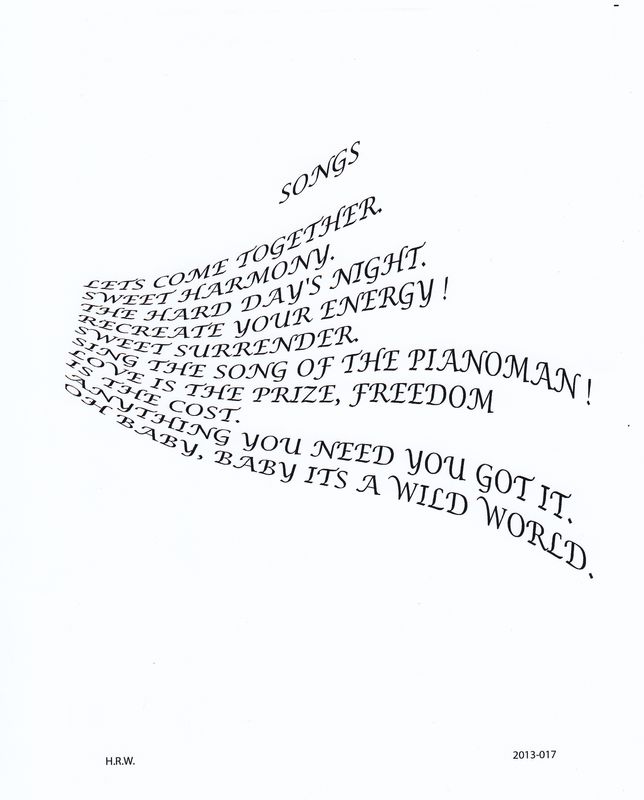 SONGS
LETS COME TOGETHER.
SWEET HARMONY.
THE HARD DAY'S NIGHT.
RECREATE YOUR ENERGY !
SWEET SURRENDER.
SING THE SONG OF THE PIANOMAN !
LOVE IS THE PRIZE, FREEDOM
IS THE COST.
ANYTHING YOU NEED YOU GOT IT.
OH BABY, BABY ITS A WILD WORLD.
H.R.W.
2013-017